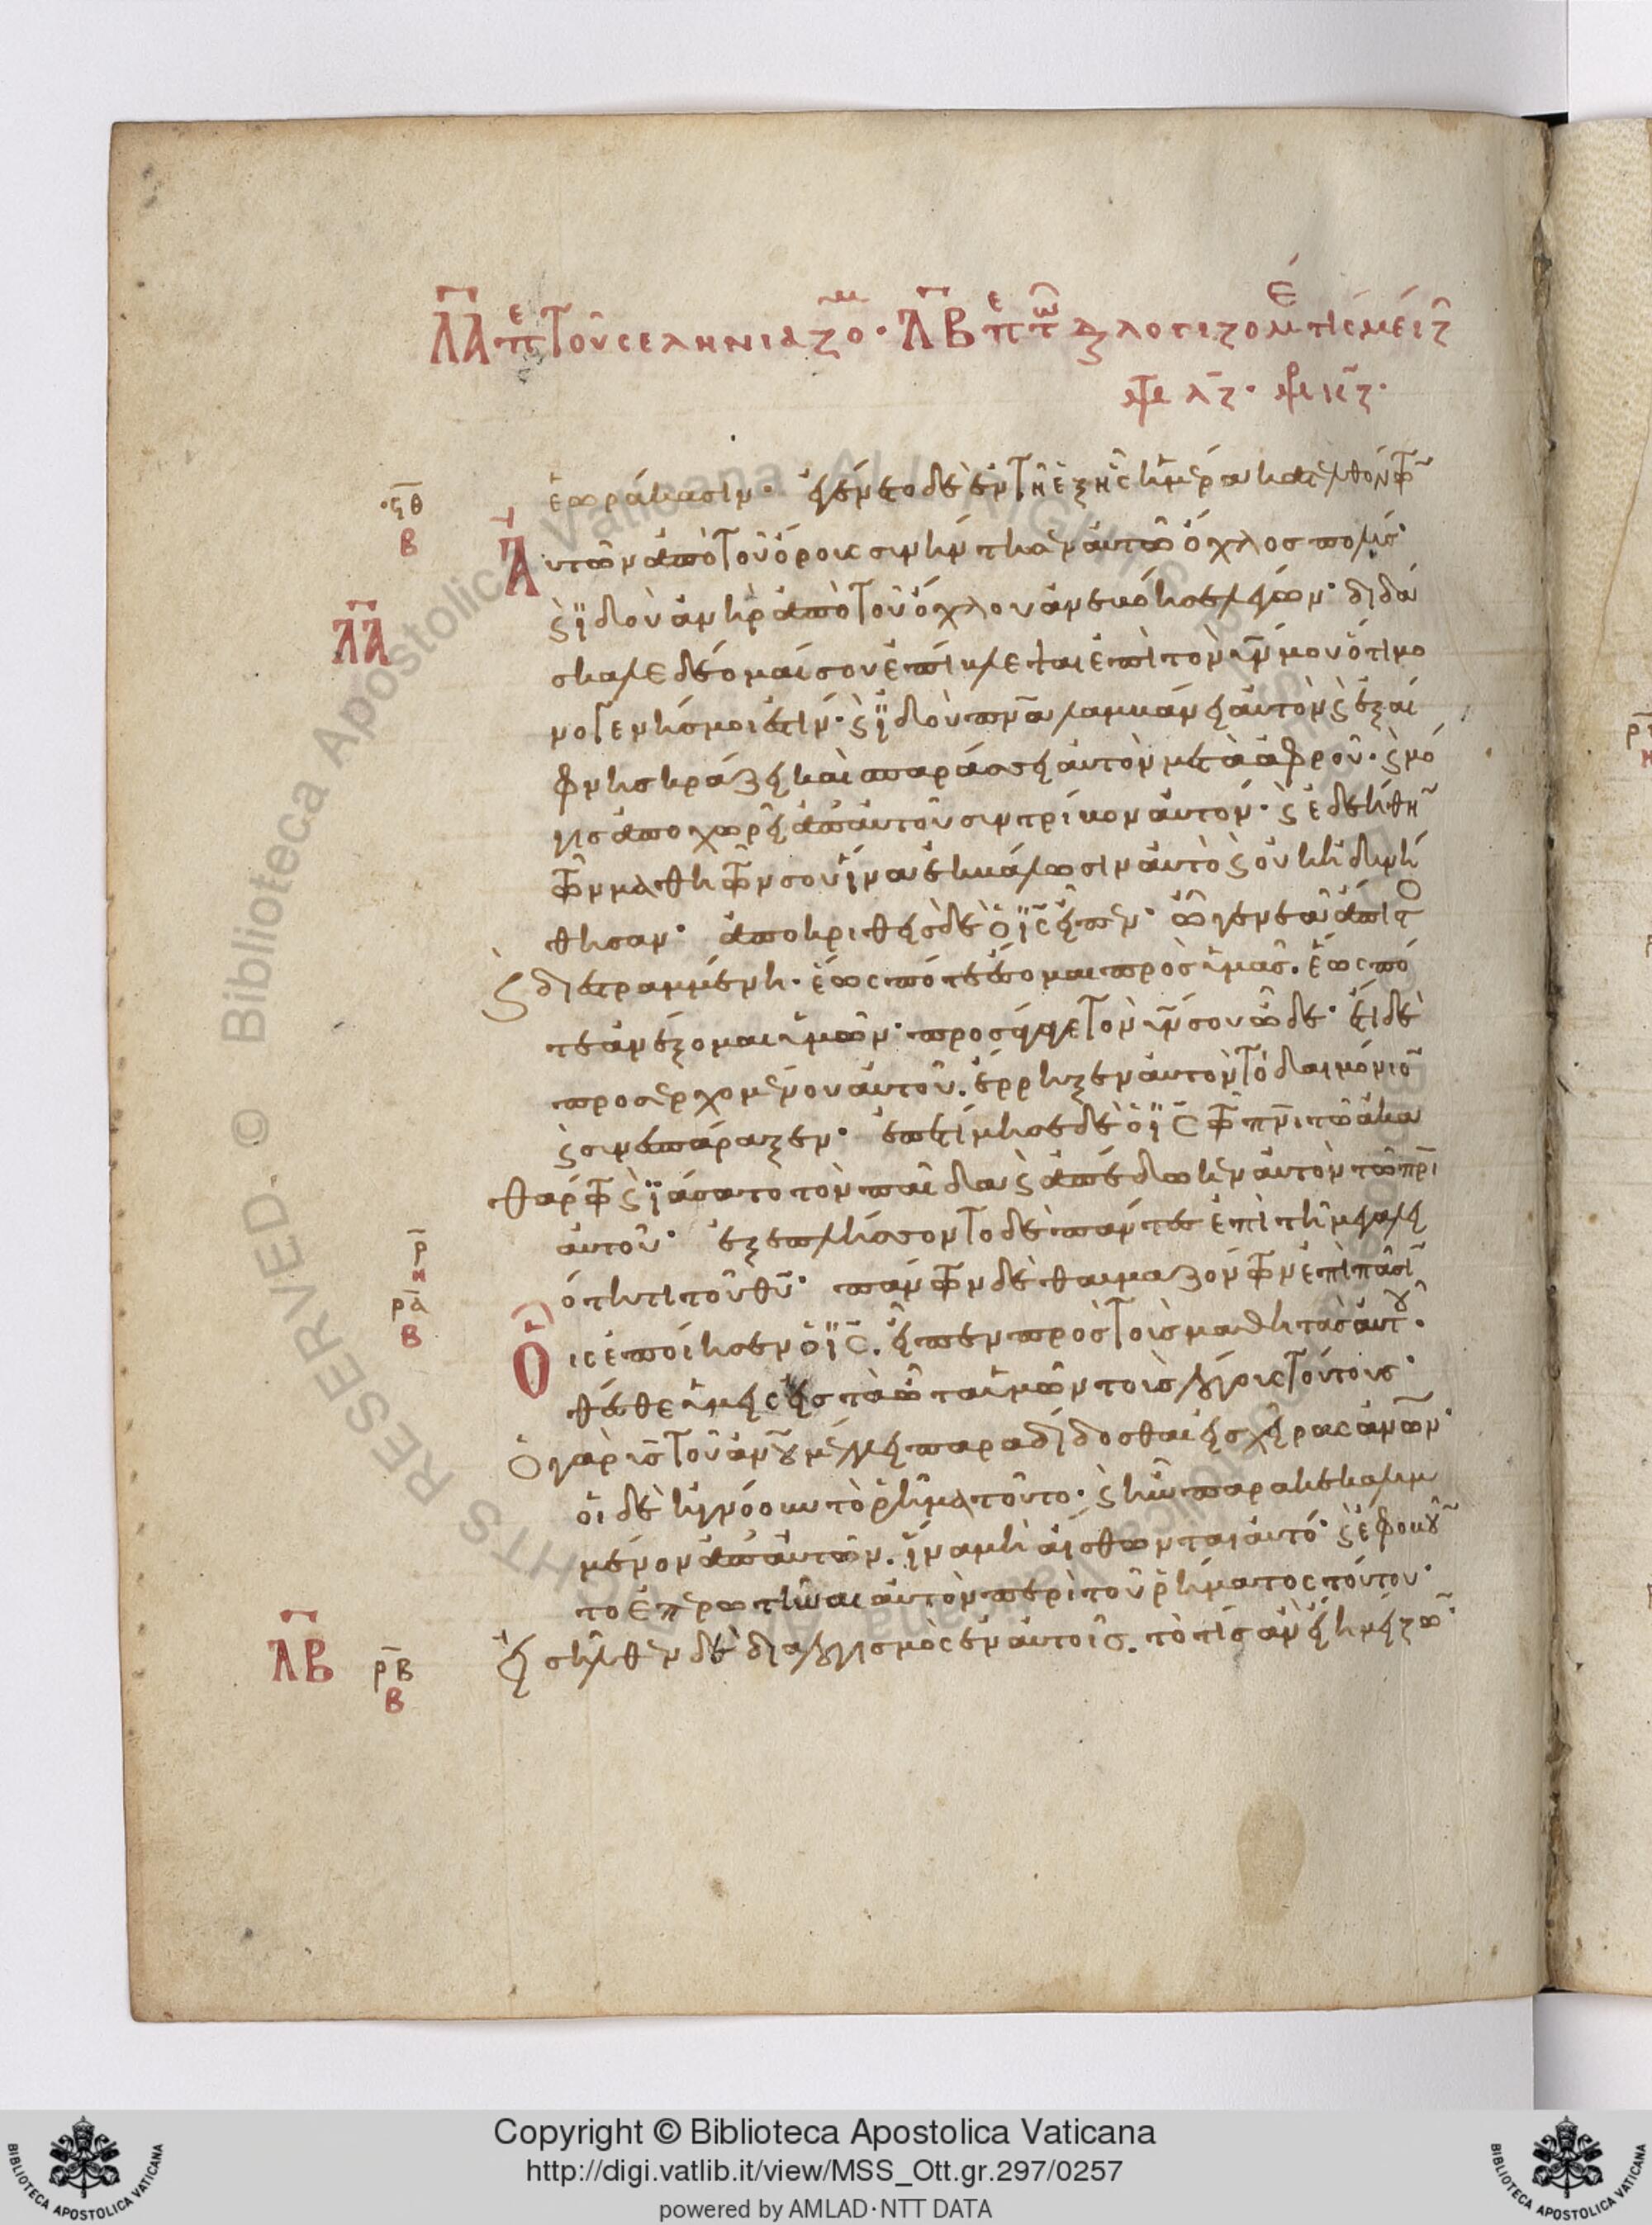 Λ͞Α πε τοῦ σεληνιαζομ · Λ͞Β πε τῶ διαλογιζομ τίς μείζ
ψε λζ · ψε κζ ·
ἑωράκασιν · ἐγένετο δὲ ἐν τῆ ἑξῆς ἡμέρα κατελθόντ
Αὐτῶν ἀπὸ τοῦ ὄρους συνήντησεν αὐτῶ ὄχλος πολύς ·
ϛθ
Β
Λ͞Α
κ(αὶ) ἰδοὺ ἀνὴρ ἀπὸ τοῦ ὄχλου ἀνεβόησε λέγων · διδά
σκαλε δέομαί σου ἐπίβλεψαι ἐπὶ τὸν υ͞ν μου ὅτι μο
νογενής μοι ἐστίν · κ(αὶ) ἰδοὺ πν͞α λαμβάνει αὐτὸν κ(αὶ) ἐξαί
φνης κράζει καὶ σπαράσσει αὐτὸν μετὰ ἀφροῦ · κ(αὶ) μό
γις ἀποχωρεῖ ἀπ αὐτοῦ συντρίβον αὐτόν · κ(αὶ) ἐδεήθη͞
τῶν μαθητῶν σου ἵνα ἐκβάλωσιν αὐτὸ κ(αὶ) οὐκ ἠδυνή
θησαν · ἀποκριθεὶς δὲ ὁ ι͞ς εἶπεν · ὦ γενεὰ ἄπιστο
κ(αὶ) διεστραμμένη · ἕως πότε ἔσομαι πρὸς ὑμᾶς · ἕως πό
τε ἀνέξομαι ὑμῶν · προσάγαγε τὸν υ͞ν σου ὧδε · ἔτι δὲ
προσερχομένου αὐτοῦ · ἔρρηξεν αὐτὸν τὸ δαιμόνιο͞
κ(αὶ) συνεσπάραξεν · ἐπετίμησε δὲ ὁ ι͞ς τῶ πν͞ι τῶ ἀκα
θάρτω κ(αὶ) ἰάσατο τὸν παῖδα κ(αὶ) ἀπέδωκεν αὐτὸν τῶ πρ͞ι
αὐτοῦ · ἐξεπλήσσοντο δὲ πάντες ἐπὶ τῆ μεγαλει
ότητι τοῦ θ͞υ · πάντων δὲ θαυμαζόντων ἐπὶ πᾶσι͞
ρ
ρα
Β
Οἷς ἐποίησεν ὁ ι͞ς · εἶπεν πρὸς τοὺς μαθητὰς αὐτοῦ ·
θέσθε ὑμεῖς εἰς τὰ ὦτα ὑμῶν τοὺς λόγους τούτους ·
Ὁ γὰρ υ͞ς τοῦ ἀν͞ου μέλλει παραδίδοσθαι εἰς χεῖρας ἀν͞ων ·
οἱ δὲ ἠγνόουν τὸ ῥῆμα τοῦτο · κ(αὶ) ἦν παρακεκαλυμ
μένον ἀπ αὐτῶν · ἵνα μὴ αἴσθωνται αὐτό · κ(αὶ) ἐφοβοῦ͞
το ἐπερωτῆσαι αὐτὸν περὶ τοῦ ῥήματος τούτου ·
Λ͞Β
ρβ
Β
Εἰσῆλθεν δὲ διαλογισμὸς ἐν αὐτοῖς · τὸ τίς ἂν εἴη μείζω͞ ·
Copyright © Biblioteca Apostolica Vaticana
http://digi.vatlib.it/view/MSS_Ott.gr.297/0257
powered by AMLAD·NTT DATA